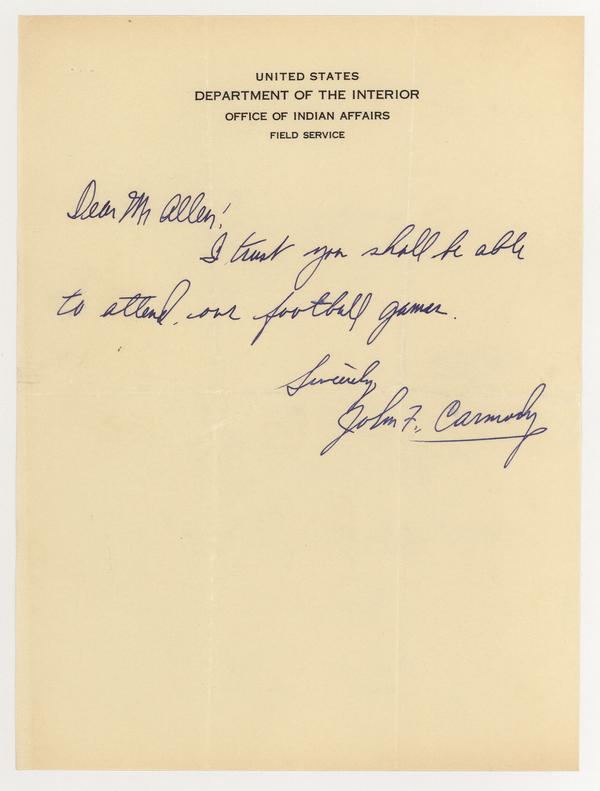 UNITED STATES
DEPARTMENT OF THE INTERIOR
OFFICE OF INDIAN AFFAIRS
FIELD SERVICE
Dear Mr Allen!
I trust you shall be able
to attend our football games.
Sincerely
John F. Carmody